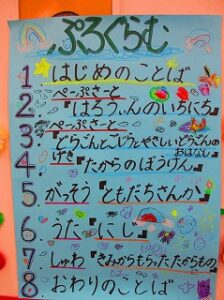 ぷろぐらむ
1 はじめのことば
ぺーぷさーと
2. 『はろうぃんのいちにち』
ぺーぷさーと
3. 『どらごんとごじらとやさしいどらごんの
おはなし』
4. げき『たからのぼうけん』
5. がっそう『ともだちさんか』
6. うた『にじ』
7. しゅわ『きみからもらったたからもの』
8 おわりのことば